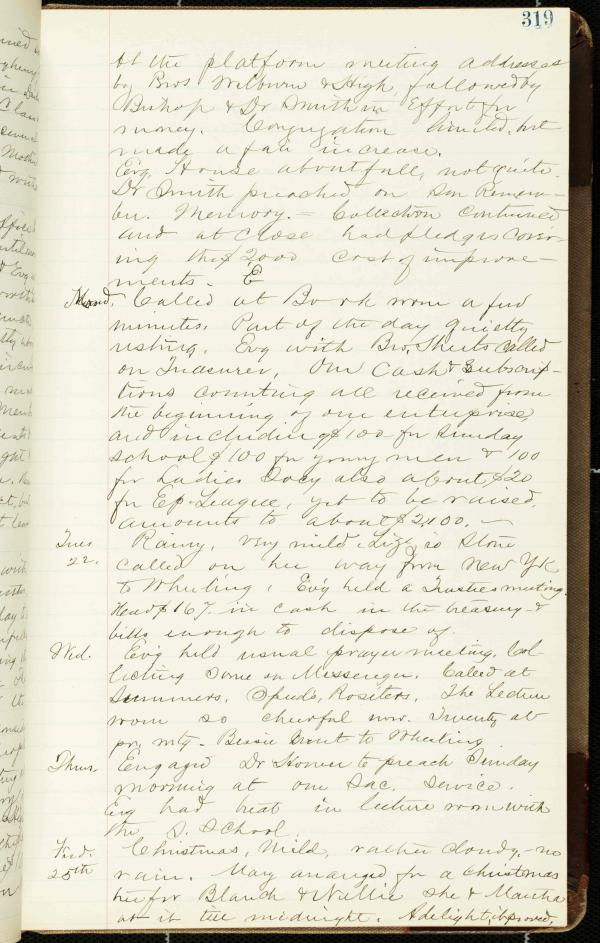 319
At the platform meeting addresses
by Bros Wilburn & High, followed by
Bishop & Dr Smith in Effort for
money. Congregation limited, but
made a fair increase.
Evg. House about full, not quite.
Dr Smith preached on Son Remem-
ber. Memory. = Collection continued
and at close had pledges cover-
ing the $2,000 cost of improve-
ments. E
Mond. Called at Book room a few
minutes. Part of the day quietly
resting. Evg with Bro. Sheets called
on Treasurer, Our Cash & Subscrip-
tions counting all received from
the beginning of our enterprise,
and including $100 for Sunday
School $100 for young men & 100
for Ladies Socy also about $20
for Ep. League, yet to be raised.
amounts to about $2,100.
Tues Rainy, very mild. Lizzie Stone
22. called on her way from New Yk
to Wheeling, Ev'g held a Trustees meeting.
Had $167. in cash in the treasury &
bills enough to dispose of.
Wed. Ev'g held usual prayer meeting. Col-
lecting some on Messenger. Called at
Summers, Spuds, Rositers. The Lecture
room so cheerful now. Twenty at
pr. mtg. Bessie Brout to Wheeling
Thurs. Engaged Dr Hoover to preach Sunday
morning at our Sac. Service.
Evg had treat in lecture room with
the S. School.
Frid. Christmas, Mild, rather cloudy, no
25th rain. May arranged for a Christmas
tree for Blanch & Nellie she & Martha
at it till midnight. A delight, it proved,